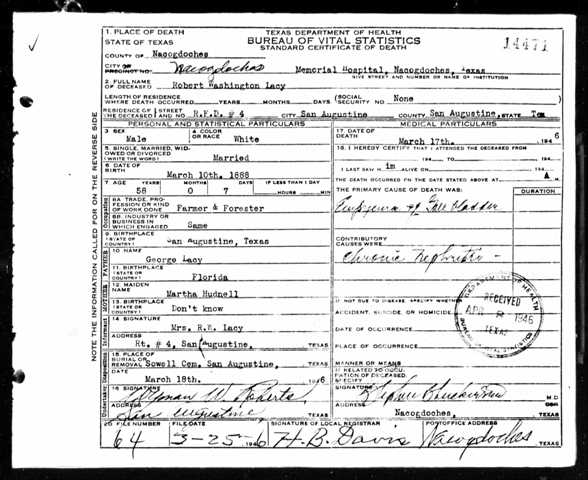 14471
1. PLACE OF DEATH
STATE OF TEXAS
TEXAS DEPARTMENT OF HEALTH
BUREAU OF VITAL STATISTICS
STANDARD CERTIFICATE OF DEATH
COUNTY OF Nacogdoches
CITY OR PRECINCT NO. Nacogdoches Memorial Hospital, Nacogdoches, Texas
GIVE STREET AND NUMBER OR NAME OF INSTITUTION
2. FULL NAME OF DECEASED Robert Washington Lacy
LENGTH OF RESIDENCE WHERE DEATH OCCURRED YEARS MONTHS DAYS SOCIAL SECURITY NO. None
RESIDENCE OF THE DECEASED STREET AND NO. R.F.D. # 4 CITY San Augustine COUNTY San Augustine, STATE Tex
PERSONAL AND STATISTICAL PARTICULARS
3. SEX Male
4. COLOR OR RACE White
5. SINGLE, MARRIED, WIDOWED OR DIVORCED (WRITE THE WORD) Married
6. DATE OF BIRTH March 10th. 1888
7. AGE YEARS 58 MONTHS 0 DAYS 7 IF LESS THAN 1 DAY HOURS MIN.
8A. TRADE, PROFESSION OR KIND OF WORK DONE Farmer & Forester
8B. INDUSTRY OR BUSINESS IN WHICH ENGAGED Same
9. BIRTHPLACE (STATE OR COUNTRY) San Augustine, Texas
FATHER
10. NAME George Lacy
11. BIRTHPLACE (STATE OR COUNTRY) Florida
MOTHER
12. MAIDEN NAME Martha Hudnell
13. BIRTHPLACE (STATE OR COUNTRY) Don't know
14. SIGNATURE Mrs. R.E. Lacy
ADDRESS Rt. # 4, San Augustine,
15. PLACE OF BURIAL OR REMOVAL Sowell Cem. San Augustine,
DATE March 18th. 1946
16. SIGNATURE W. Roberts
ADDRESS San Augustine, TEXAS
MEDICAL PARTICULARS
17. DATE OF DEATH March 17th. 1946
18. I HEREBY CERTIFY THAT I ATTENDED THE DECEASED FROM
194 TO 194
I LAST SAW H im ALIVE ON 194
THE DEATH OCCURRED ON THE DATE STATED ABOVE AT A M.
THE PRIMARY CAUSE OF DEATH WAS: DURATION
Empyema of Gall bladder
CONTRIBUTORY CAUSES WERE:
Chronic Nephritis
IF NOT DUE TO DISEASE, SPECIFY WHETHER
ACCIDENT, SUICIDE, OR HOMICIDE
DATE OF OCCURRENCE
PLACE OF OCCURRENCE
MANNER OR MEANS
IF RELATED TO OCCUPATION OF DECEASED SPECIFY
SIGNATURE M.D.
ADDRESS Nacogdoches, TEXAS
DEPARTMENT OF HEALTH
RECEIVED
APR 8 1946
TEXAS
BUREAU OF VITAL STATISTICS
20. FILE NUMBER 64
FILE DATE 3-25-1946
SIGNATURE OF LOCAL REGISTRAR H. B. Davis
POSTOFFICE ADDRESS Nacogdoches TEXAS
NOTE THE INFORMATION CALLED FOR ON THE REVERSE SIDE